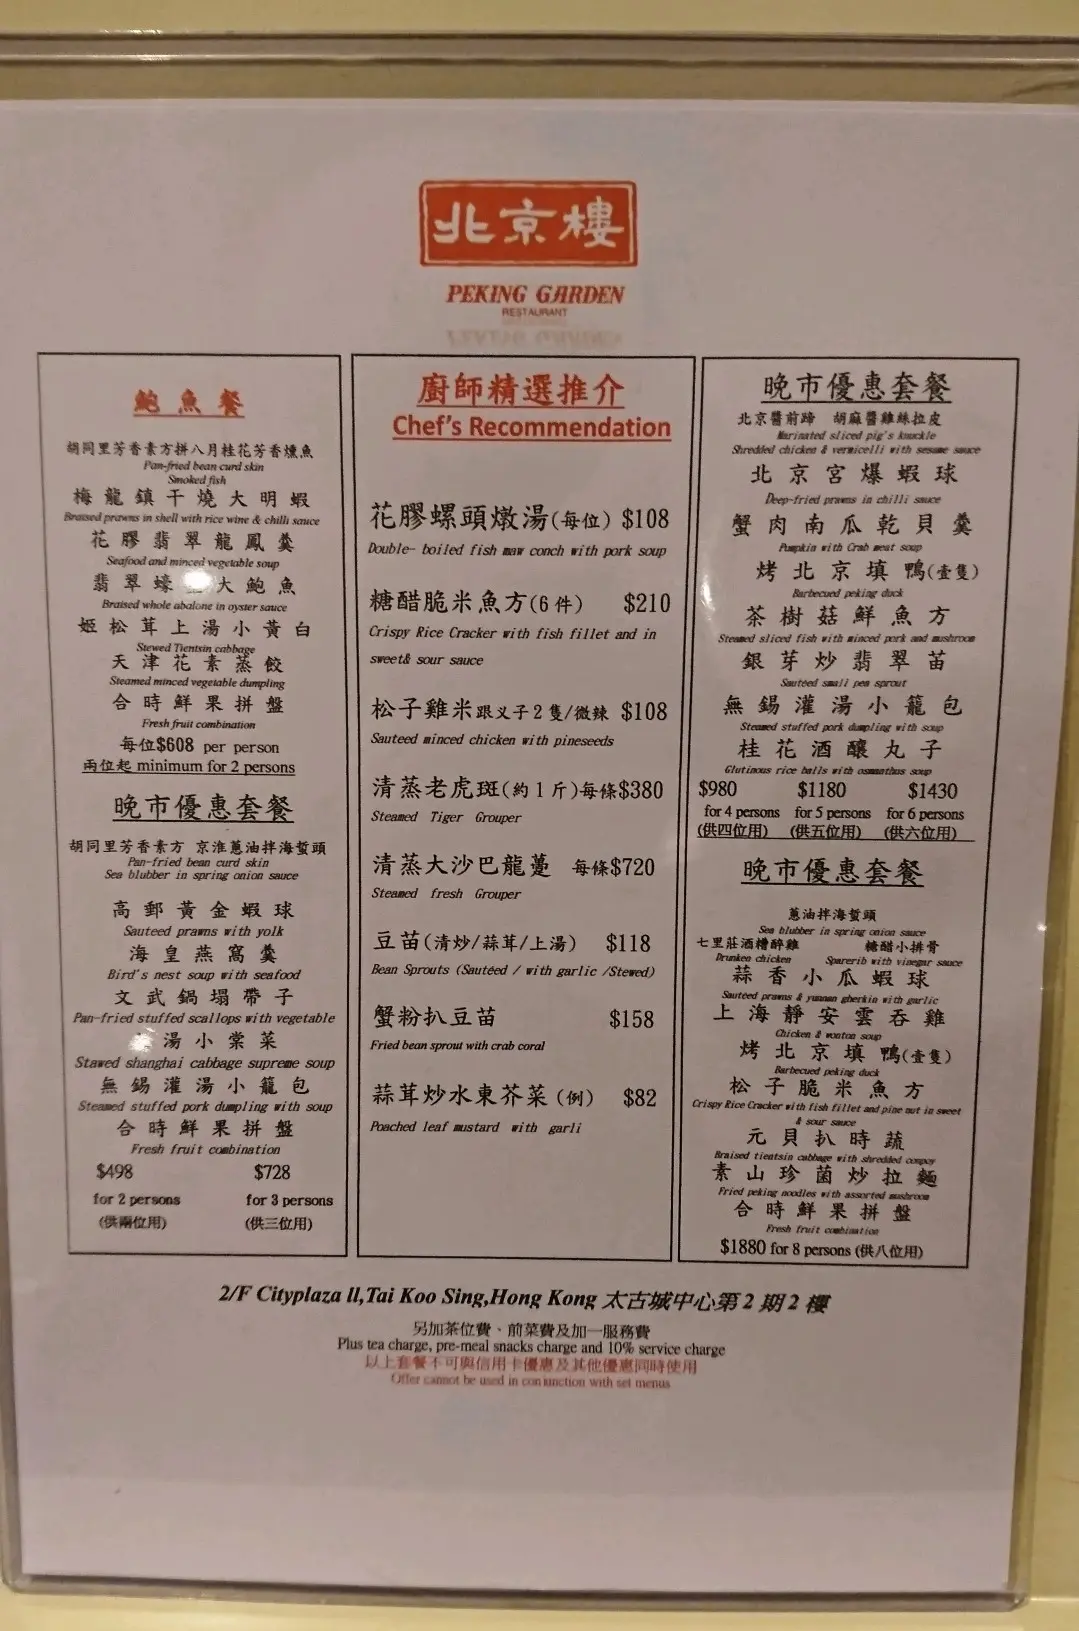 北京樓
PEKING GARDEN
RESTAURANT
鮑魚餐
胡同里芳香素方拼八月桂花芳香燻魚
Pan-fried bean curd skin
Smoked fish
梅龍鎮干燒大明蝦
Braised prawns in shell with rice wine & chilli sauce
花膠翡翠龍鳳羹
Seafood and minced vegetable soup
翡翠蠔大鮑魚
Braised whole abalone in oyster sauce
姬松茸上湯小黃白
Stewed Tientsin cabbage
天津花素蒸餃
Steamed minced vegetable dumpling
合時鮮果拼盤
Fresh fruit combination
每位$608 per person
兩位起 minimum for 2 persons
晚市優惠套餐
胡同里芳香素方 京淮蔥油拌海蜇頭
Pan-fried bean curd skin
Sea blubber in spring onion sauce
高郵黃金蝦球
Sauteed prawns with yolk
海皇燕窩羹
Bird's nest soup with seafood
文武鍋塌帶子
Pan-fried stuffed scallops with vegetable
湯小棠菜
Stawed shanghai cabbage supreme soup
無錫灌湯小籠包
Steamed stuffed pork dumpling with soup
合時鮮果拼盤
Fresh fruit combination
$498 $728
for 2 persons for 3 persons
(供兩位用) (供三位用)
廚師精選推介
Chef's Recommendation
花膠螺頭燉湯(每位) $108
Double- boiled fish maw conch with pork soup
糖醋脆米魚方(6 件) $210
Crispy Rice Cracker with fish fillet and in
sweet& sour sauce
松子雞米跟义子2隻/微辣 $108
Sauteed minced chicken with pineseeds
清蒸老虎斑(約1斤)每條$380
Steamed Tiger Grouper
清蒸大沙巴龍躉 每條$720
Steamed fresh Grouper
豆苗(清炒/蒜茸/上湯) $118
Bean Sprouts (Sautéed / with garlic /Stewed)
蟹粉扒豆苗 $158
Fried bean sprout with crab coral
蒜茸炒水東芥菜(例) $82
Poached leaf mustard with garli
晚市優惠套餐
北京醬前蹄 胡麻醬雞絲拉皮
Marinated sliced pig's knuckle
Shredded chicken & vermicelli with sesame sauce
北京宮爆蝦球
Deep-fried prawns in chilli sauce
蟹肉南瓜乾貝羹
Pumpkin with Crab meat soup
烤北京填鴨(壹隻)
Barbecued peking duck
茶樹菇鮮魚方
Steamed sliced fish with minced pork and mushroom
銀芽炒翡翠苗
Sautéed small pea sprout
無錫灌湯小籠包
Steamed stuffed pork dumpling with soup
桂花酒釀丸子
Glutinous rice balls with osmanthus soup
$980 $1180 $1430
for 4 persons for 5 persons for 6 persons
(供四位用) (供五位用) (供六位用)
晚市優惠套餐
蔥油拌海蜇頭
Sea blubber in spring onion sauce
七里莊酒糟醉雞 糖醋小排骨
Drunken chicken Sparerib with vinegar sauce
蒜香小瓜蝦球
Sautéed prawns & yunnan gherkin with garlic
上海靜安雲吞雞
Chicken & wonton soup
烤北京填鴨(壹隻)
Barbecued peking duck
松子脆米魚方
Crispy Rice Cracker with fish fillet and pine nut in sweet
& sour sauce
元貝扒時蔬
Braised tientsin cabbage with shredded conpoy
素山珍菌炒拉麵
Fried peking noodles with assorted mushroom
合時鮮果拼盤
Fresh fruit combination
$1880 for 8 persons (供八位用)
2/F Cityplaza ll,Tai Koo Sing,Hong Kong 太古城中心第2期2樓
另加茶位費、前菜費及加一服務費
Plus tea charge, pre-meal snacks charge and 10% service charge
以上套餐不可與信用卡優惠及其他優惠同時使用
Offer cannot be used in conjunction with set menus